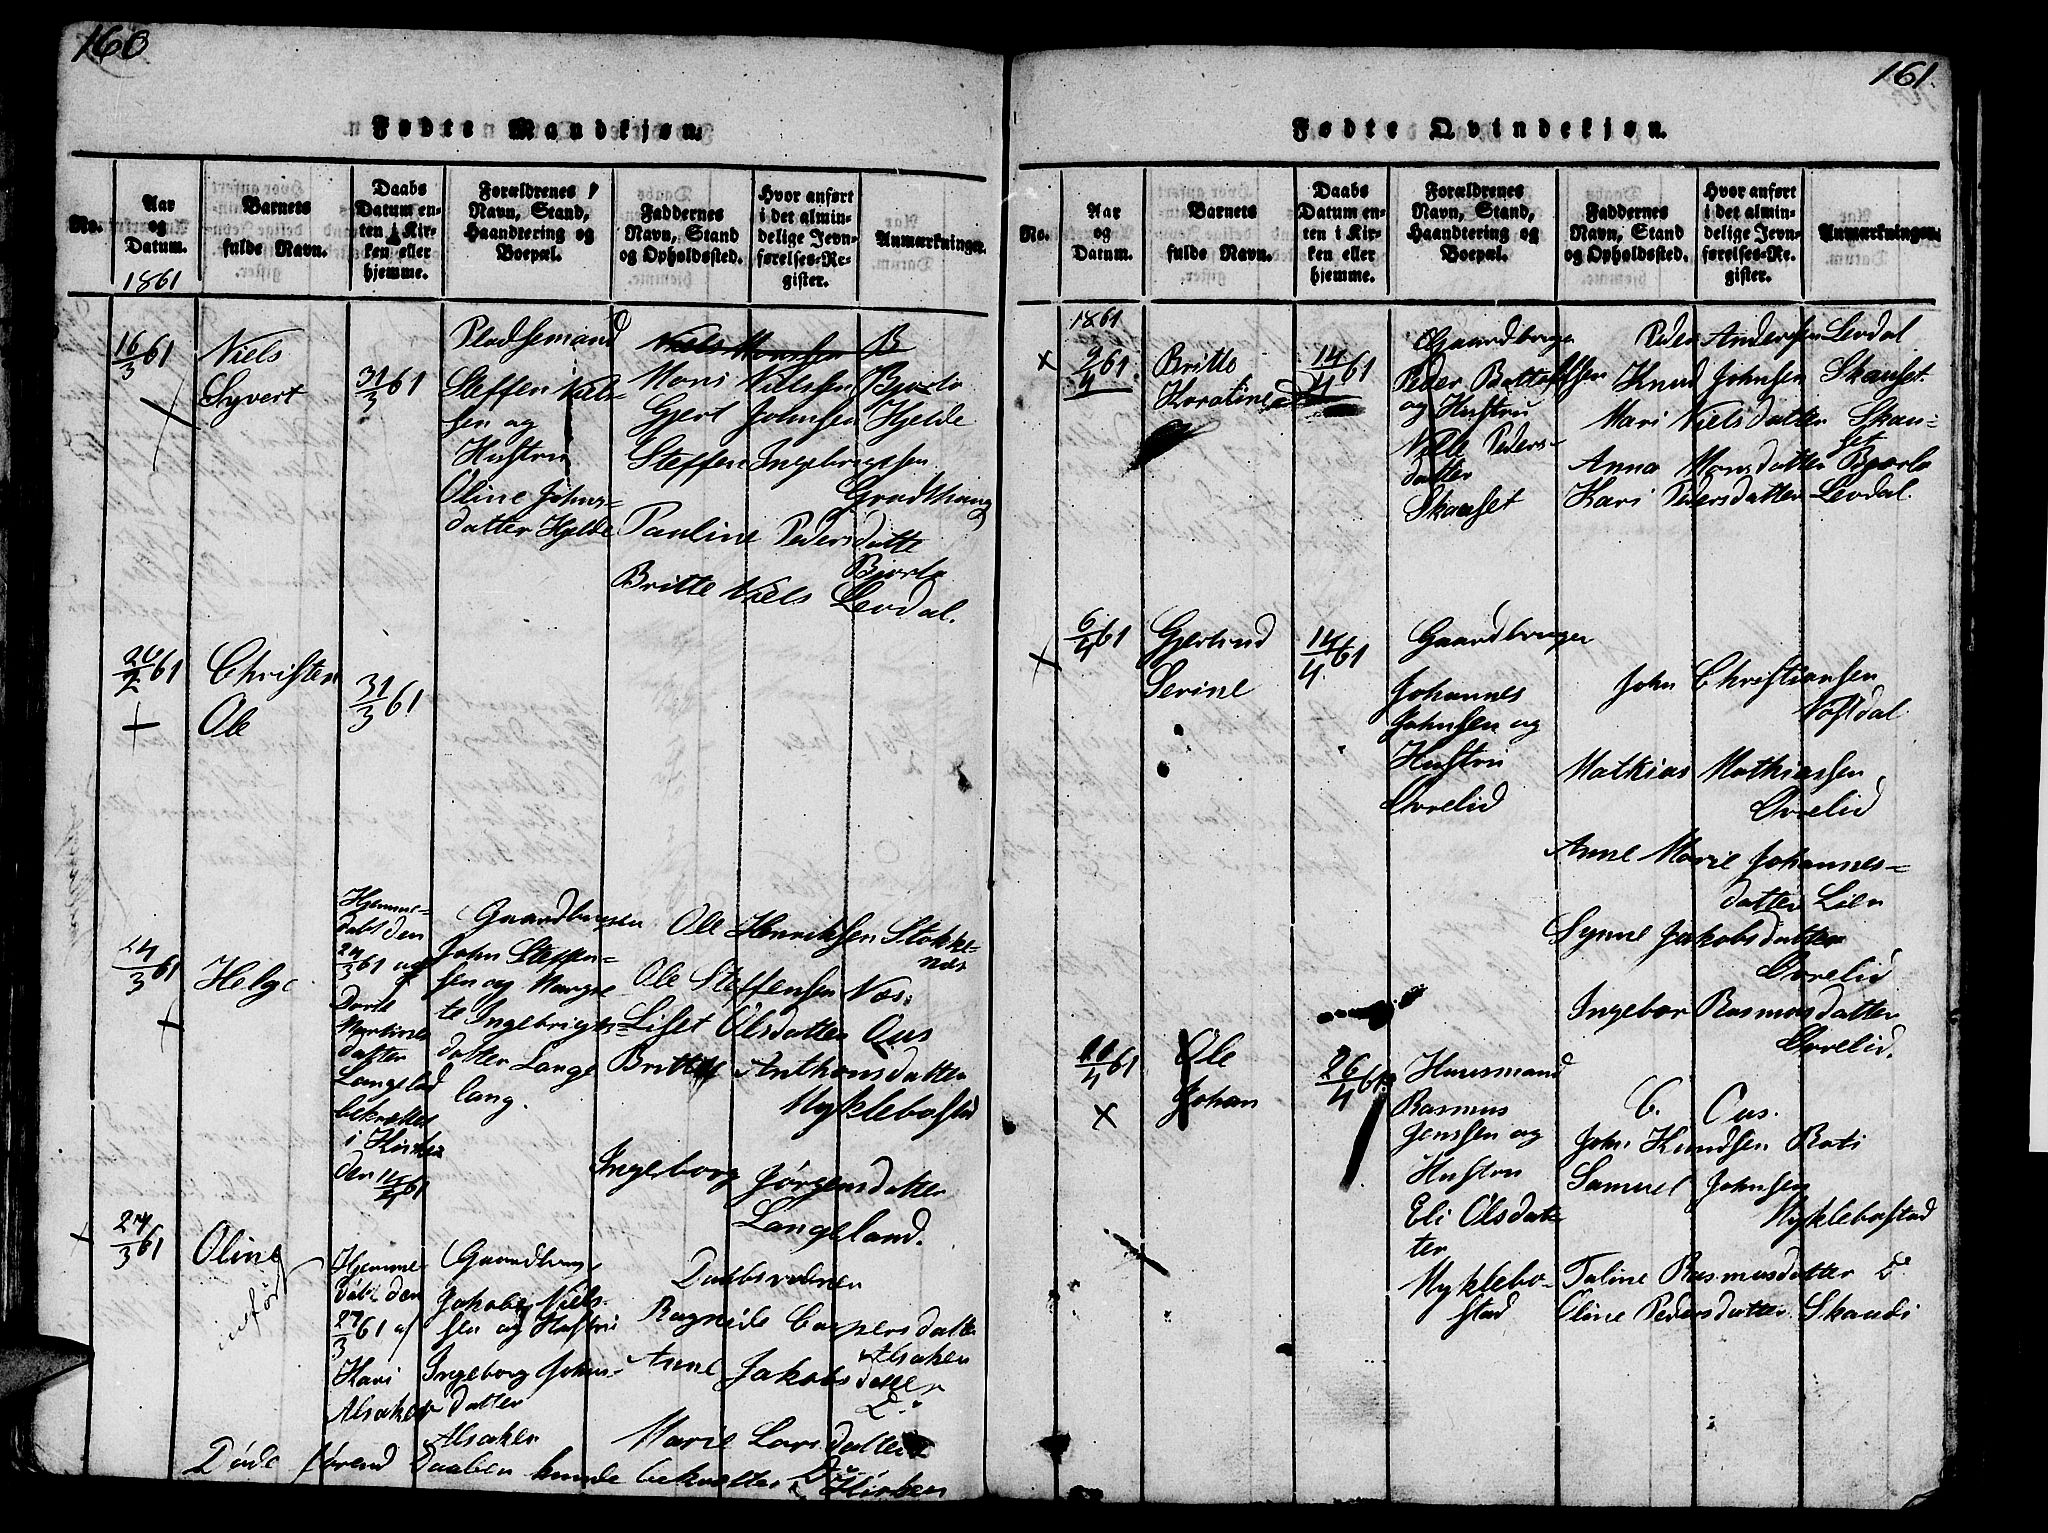 160
Fødte Mandkjøn.
No.
Aar og Datum.
Barnets fulde Navn.
Daabs Datum enten i Kirken eller hjemme.
Forældrenes Navn, Stand, Haandtering og Boepæl.
Faddernes Navn, Stand og Opholdssted.
Hvor anført i det almindelige Jevnførelses-Register.
Anmærkninger.
1861
16/3 61
Niels
Syvert
31/3 61
Pladsemand
Steffen Niel-
sen og
Hustru
Oline Johns-
datter Hjelde
Niels Monssen B
Mons Nielssen Bjorlo
Gjert Johnsen Hjelde
Steffen Ingebrigssen
Pauline Pedersdatte
Bjorlo
Britte Niels Levdal.
Christen
Ole
31/3 61
24/3 61
Helge
Hjemme-
døbt den
24/3 61 af
Dorte
Martines
datter
Langeland
bekræftet
i Kirken
den
Gaardbruger
John Steffen-
sen og Margre
te Ingebrigts-
datter Lange
lang.
Ole Henriksen Stokke-
næs
Ole Steffensen Næs.
Liset Olsdatter Ous
Britte Anthonsdatter
Myklebostad
Ingeborg Jørgensdatter
Langeland.
27/3 61
Oline
Hjemme-
døbt den
27/3 61 af
Kari
Alsaker
Gaardbrug
Jakobs Niels-
sen og Hustru
Ingeborg Johns-
datter
Alsaker
Daabsvidner
Ragnide Caspersdatter
Alsaker
Anne Jakobsdatter
Do
Marie Larsdatter
Do
Døde førend Daaben kunde bekræftes i Kirken
161
Fødte Qvindekjøn.
No.
Aar og Datum.
Barnets fulde Navn.
Daabs Datum enten i Kirken eller hjemme.
Forældrenes Navn, Stand, Haandtering og Boepæl.
Faddernes Navn, Stand og Opholdssted.
Hvor anført i det almindelige Jevnførelses-Register.
Anmærkninger.
1861
9/4 61
Britte
Karoline
14/4 61
Gaardbruger
Peder
og Hustru
Nille Peders-
datter
Skauset
Peder Anderssen Levdal
Knud Johnsen Skauset.
Mari Nielsdatter Skau-
set
Anna Monsdatter Bjorlo
Kari Pedersdatter Levdal.
6/4 61
Gjertrud
Serine
14/4 61
Gaardbruger
Johannes
Johnsen og
Hustru
Øvrelid
John Christiansen
Nøstdal
Mathias Mathiassen
Øvrelid
Anne Marie Johannes-
datter Lien
Synne Jakobsdatter
Øvrelid
Ingebor Rasmusdatter
Øvrelid.
Ole
Johan
26/4 61
Huusmand
Rasmus
Jenssen og
Hustru
Eli Olsdat-
ter
Myklebo-
stad
C. Ous.
John Knudsen
Samuel Johnsen
Myklebostad
Taline Rasmusdatter Do
Oline Pedersdatter